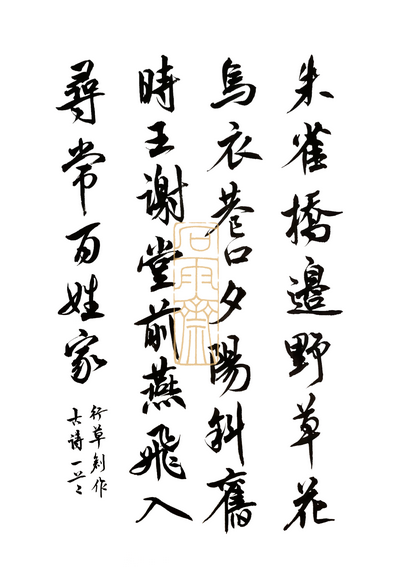 朱雀橋邊野草花
烏衣巷口夕陽斜舊
時王謝堂前燕飛入
尋常百姓家
行草創作
古诗一首